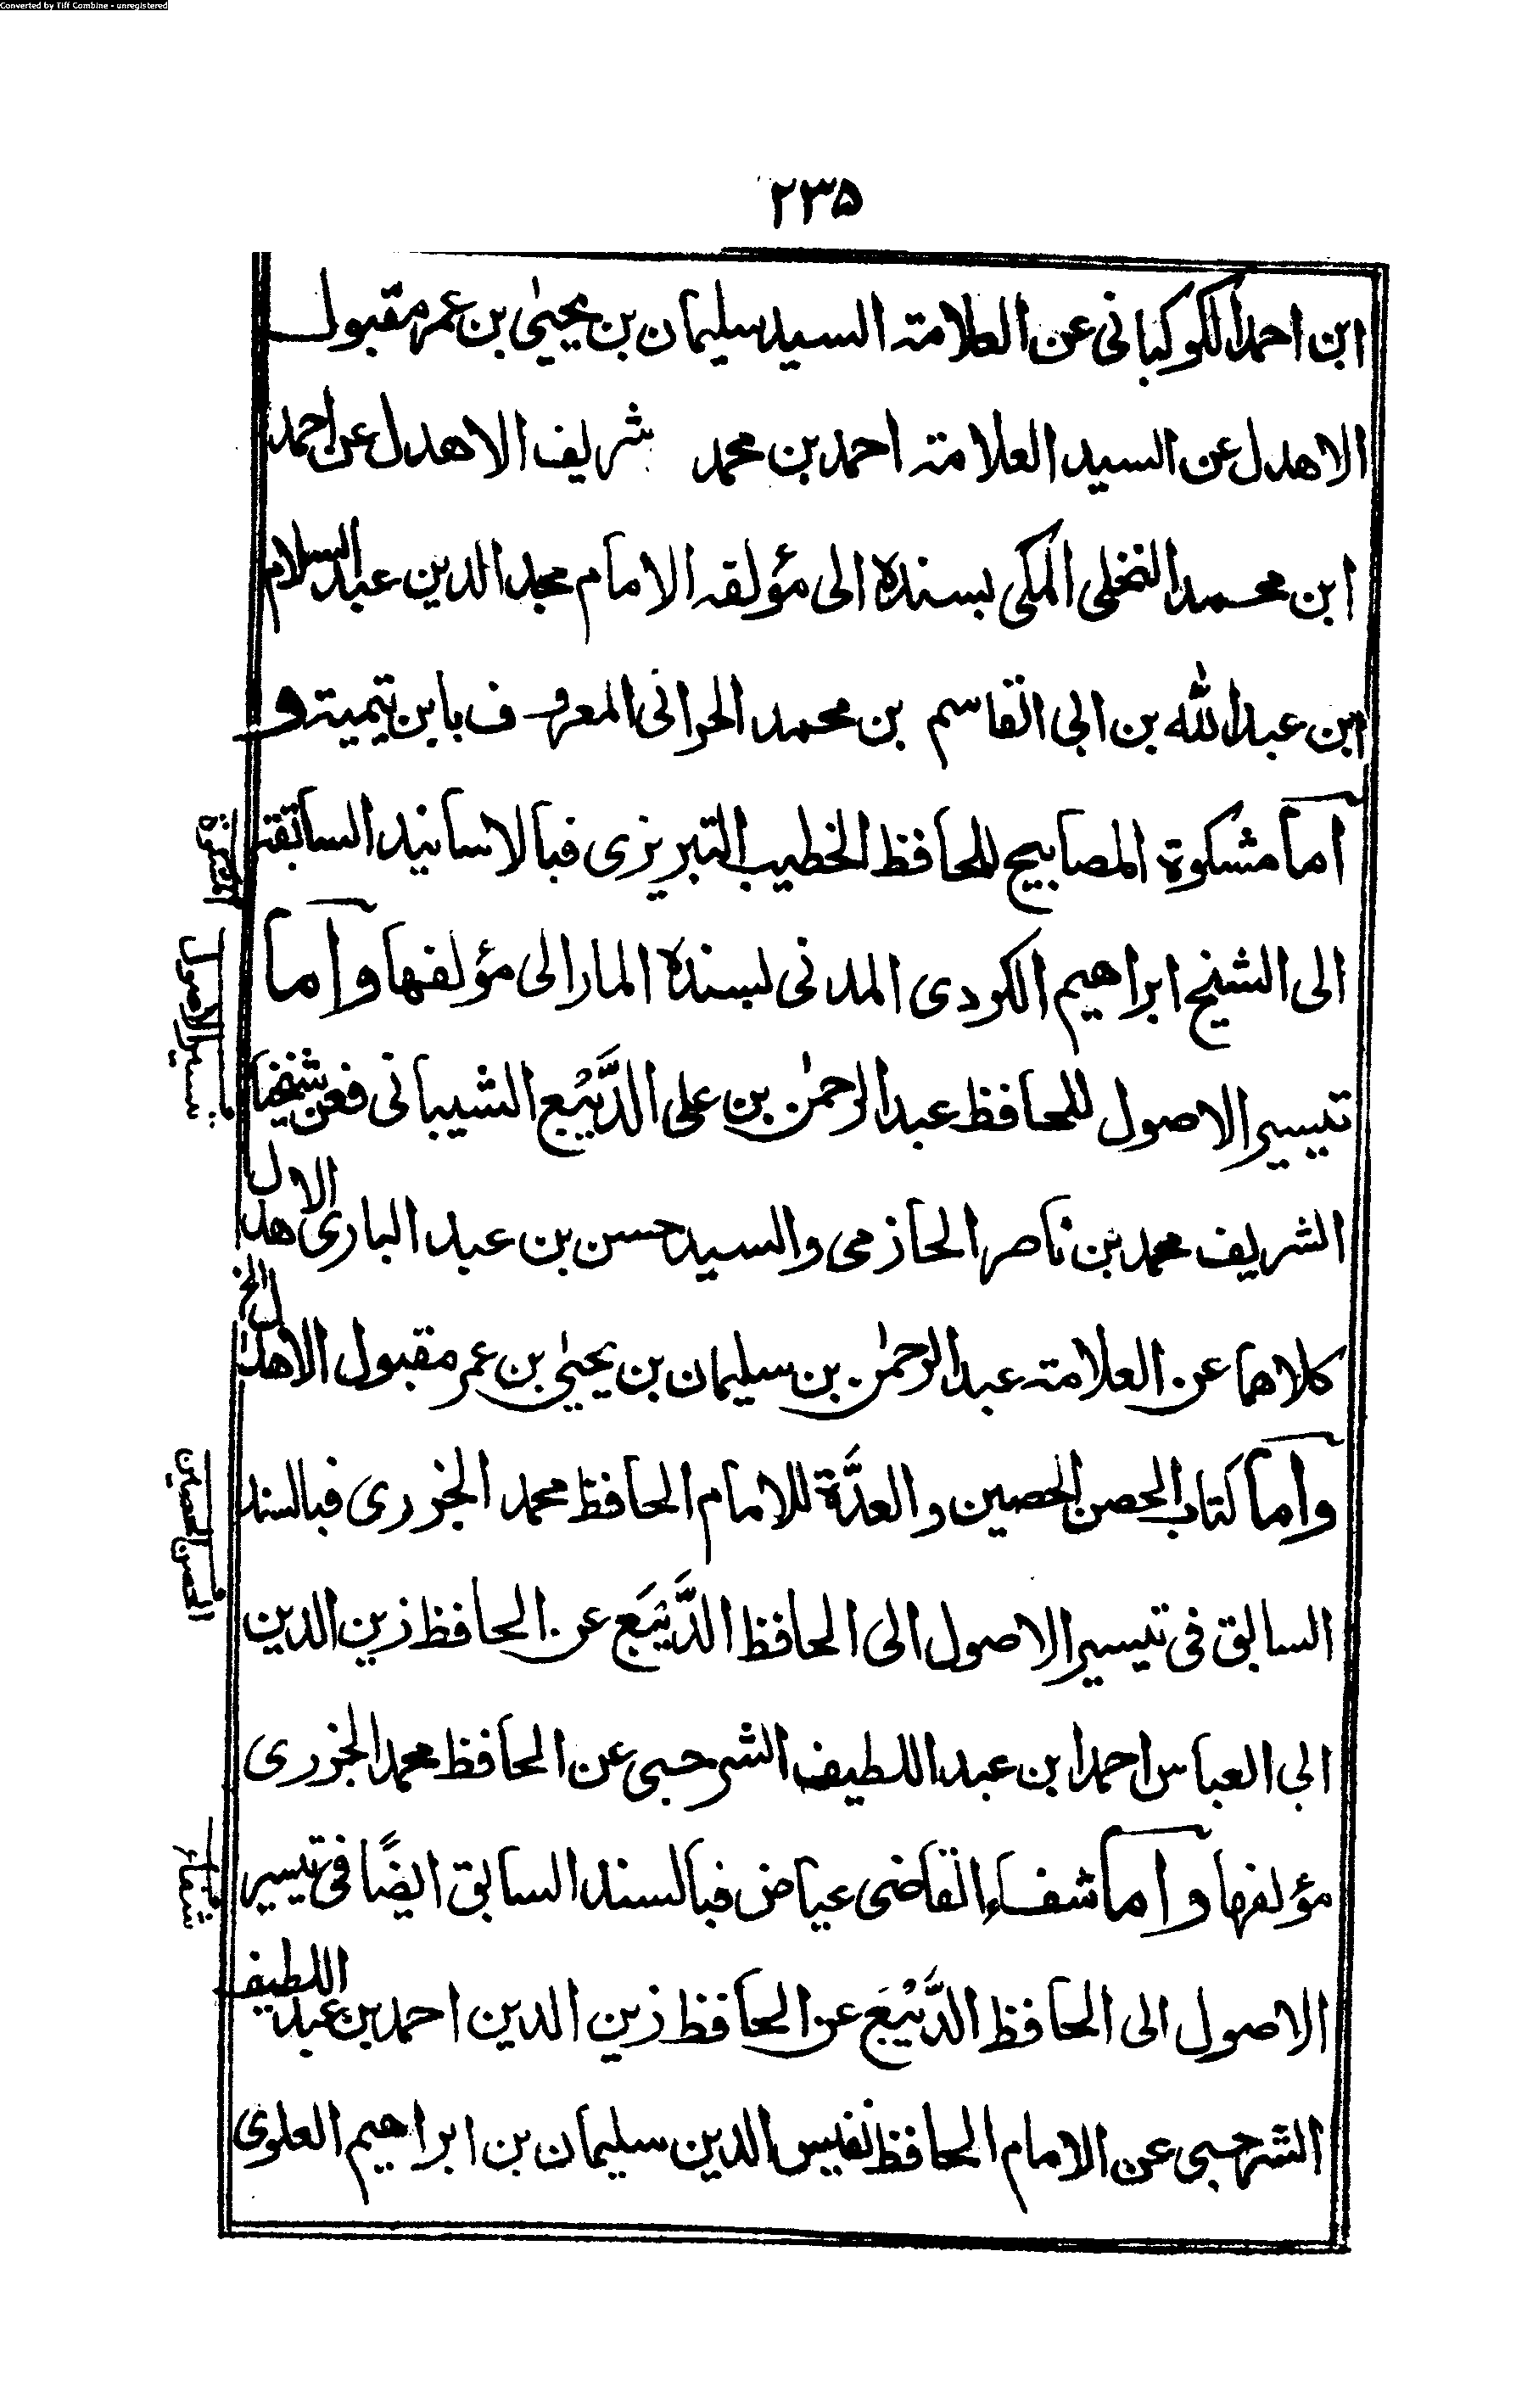 Converted by Tiff Combine - unregistered
۲۳۵
ابن احمد الكوكبانى عن العلامة السيد سليمان بن يحيىٰ بن عمر مقبول
الاهدل عن السيد العلامة احمد بن محمد شريف الاهدل عن احمد
ابن محمد النخلى المكى بسنده الى مؤلفه الامام مجد الدين عبد السلام
ابن عبد الله بن ابى القاسم بن محمد الحرانى المعروف بابن تيمية و
اما مشكوة المصابيح للحافظ الخطيب التبريزى فبالاسانيد السابقة
الى الشيخ ابراهيم الكردى المدنى بسنده المار الى مؤلفها واما
تيسير الاصول للحافظ عبد الرحمٰن بن على الدَّيْبَع الشيبانى فعن شيخنا
الشريف محمد بن ناصر الحازمى والسيد حسن بن عبد البارى الاهدل
كلاهما عن العلامة عبد الرحمٰن بن سليمان بن يحيىٰ بن عمر مقبول الاهدل الخ
واما كتاب الحصن الحصين والعدَّة للامام الحافظ محمد الجزرى فبالسند
السابق فى تيسير الاصول الى الحافظ الدَّيْبَع عن الحافظ زين الدين
ابى العباس احمد ابن عبد اللطيف الشرجى عن الحافظ محمد الجزرى
مؤلفها واما شفاء القاضى عياض فبالسند السابق ايضًا فى تيسير
الاصول الى الحافظ الدَّيْبَع عن الحافظ زين الدين احمد بن عبد اللطيف
الشرجى عن الامام الحافظ نفيس الدين سليمان بن ابراهيم العلوى
المشكوة
تيسير الاصول
الحصن الحصين
شفاء